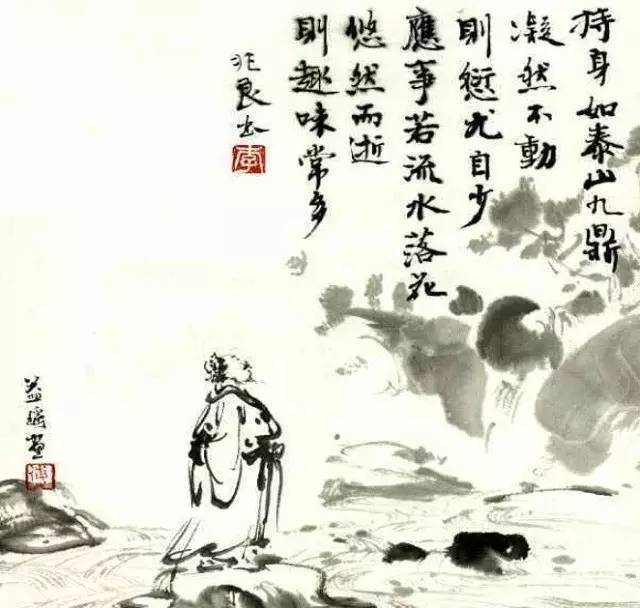 持身如泰山九鼎
凝然不動
則愆尤自少
應事若流水落花
悠然而逝
則趣味常多
兆良书
李
益瑤畫
傅